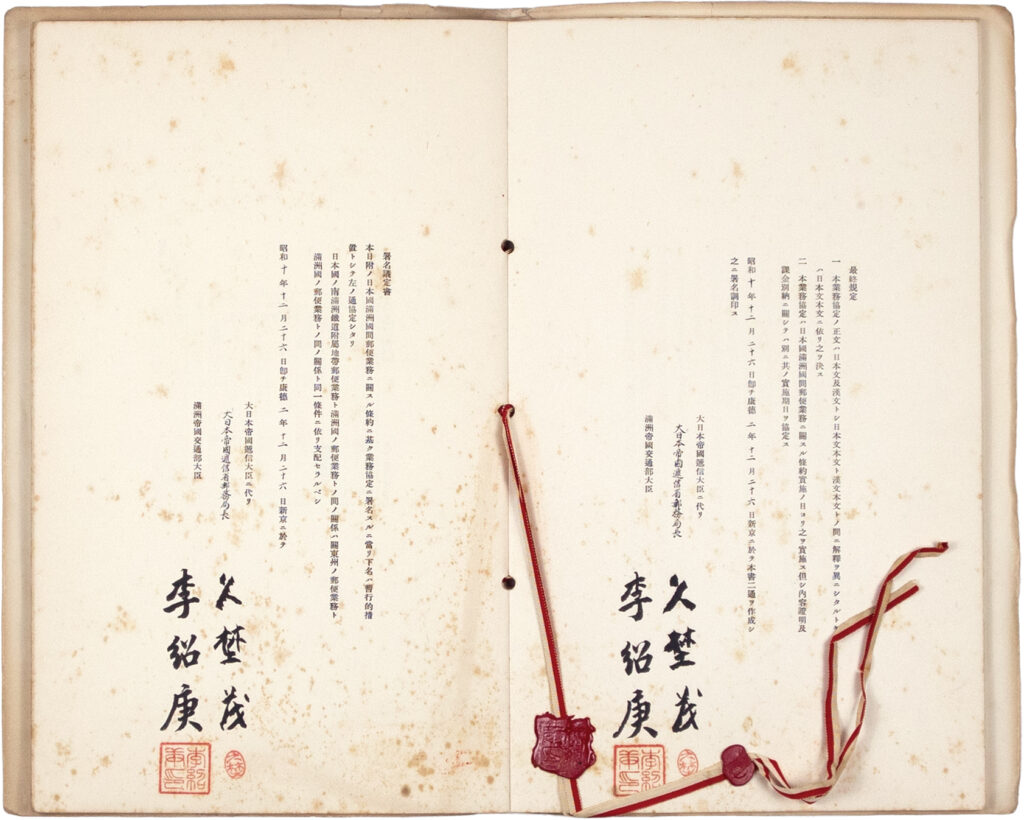 最終規定
一 本業務協定ノ正文ハ日本文及漢文トシ日本文本文ト漢文本文トノ間ニ解釋ヲ異ニシタルトキ
ハ日本文本文ニ依リ之ヲ決ス
二 本業務協定ハ日本國滿洲國間郵便業務ニ關スル條約實施ノ日ヨリ之ヲ實施ス但シ內容證明及
課金別納ニ關シテハ別ニ其ノ實施期日ヲ協定ス
昭和十年十二月二十六日卽チ康德二年十二月二十六日新京ニ於テ本書二通ヲ作成シ
之ニ署名調印ス
大日本帝國遞信大臣ニ代リ
大日本帝國遞信省郵務局長
久埜茂
滿洲帝國交通部大臣
李紹庚
李紹庚印
署名議定書
本日附ノ日本國滿洲國間郵便業務ニ關スル條約ニ基ク業務協定ニ署名スルニ當リ下名ハ暫行的措
置トシテ左ノ通協定シタリ
日本國ノ南滿洲鐵道附屬地帶郵便業務ト滿洲國ノ郵便業務トノ間ノ關係ハ關東州ノ郵便業務ト
滿洲國ノ郵便業務トノ間ノ關係ト同一條件ニ依リ支配セラルベシ
昭和十年十二月二十六日卽チ康德二年十二月二十六日新京ニ於テ
大日本帝國遞信大臣ニ代リ
大日本帝國遞信省郵務局長
久埜茂
滿洲帝國交通部大臣
李紹庚
李紹庚印